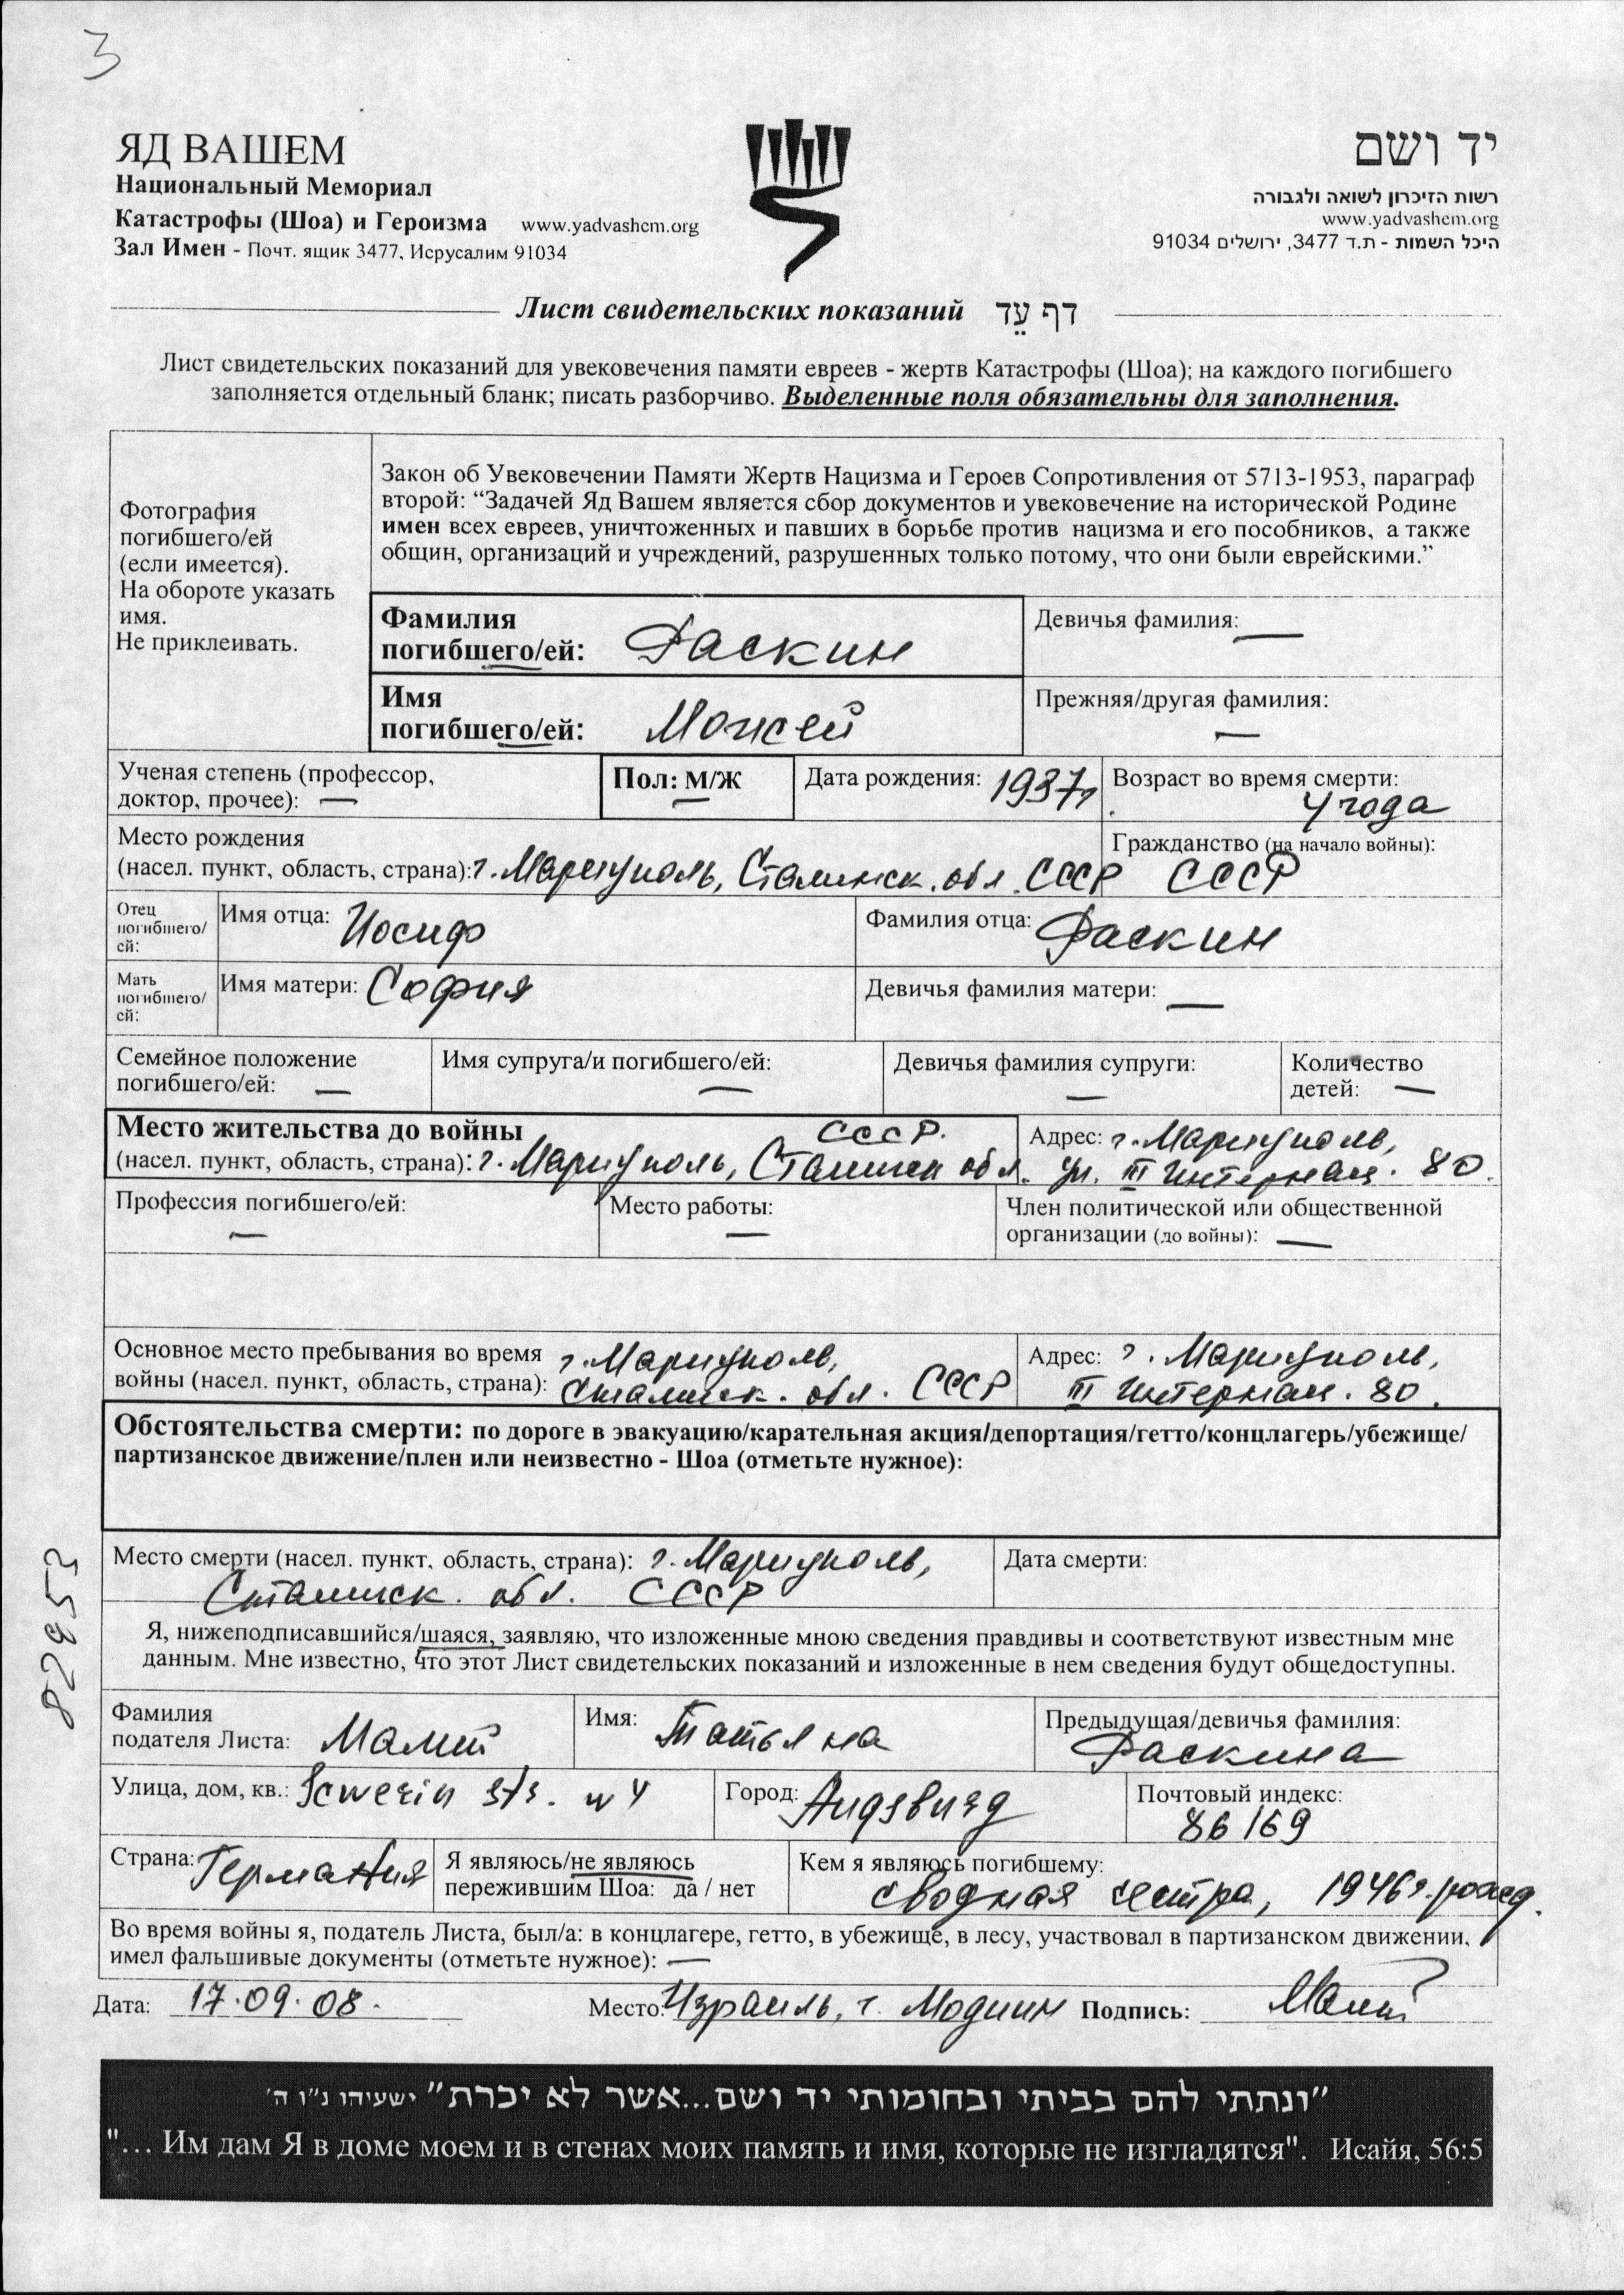 3
ЯД ВАШЕМ
Национальный Мемориал
Катастрофы (Шоа) и Героизма www.yadvashem.org
Зал Имен - Почт. ящик 3477, Иерусалим 91034
יד ושם
רשות הזיכרון לשואה ולגבורה
www.yadvashem.org
היכל השמות - ת.ד 3477, ירושלים 91034
Лист свидетельских показаний דף עֵד
Лист свидетельских показаний для увековечения памяти евреев - жертв Катастрофы (Шоа); на каждого погибшего
заполняется отдельный бланк; писать разборчиво. Выделенные поля обязательны для заполнения.
Фотография
погибшего/ей
(если имеется).
На обороте указать
имя.
Не приклеивать.
Закон об Увековечении Памяти Жертв Нацизма и Героев Сопротивления от 5713-1953, параграф
второй: “Задачей Яд Вашем является сбор документов и увековечение на исторической Родине
имен всех евреев, уничтоженных и павших в борьбе против нацизма и его пособников, а также
общин, организаций и учреждений, разрушенных только потому, что они были еврейскими.”
Фамилия
погибшего/ей: Раскин
Девичья фамилия: —
Имя
погибшего/ей: Моисей
Прежняя/другая фамилия:
—
Ученая степень (профессор,
доктор, прочее): —
Пол: М/Ж
Дата рождения: 1937г.
Возраст во время смерти:
4 года
Место рождения
(насел. пункт, область, страна): г. Мариуполь, Сталинск. обл. СССР
Гражданство (на начало войны):
СССР
Отец
погибшего/
ей:
Имя отца: Иосиф
Фамилия отца: Раскин
Мать
погибшего/
ей:
Имя матери: София
Девичья фамилия матери: —
Семейное положение
погибшего/ей: —
Имя супруга/и погибшего/ей:
—
Девичья фамилия супруги:
—
Количество
детей: —
Место жительства до войны СССР.
(насел. пункт, область, страна): г. Мариуполь, Сталинск обл.
Адрес: г. Мариуполь,
ул. III Интернац. 80.
Профессия погибшего/ей:
—
Место работы:
—
Член политической или общественной
организации (до войны): —
Основное место пребывания во время г. Мариуполь,
войны (насел. пункт, область, страна): Сталинск. обл. СССР
Адрес: г. Мариуполь,
III Интернац. 80.
Обстоятельства смерти: по дороге в эвакуацию/карательная акция/депортация/гетто/концлагерь/убежище/
партизанское движение/плен или неизвестно - Шоа (отметьте нужное):
Место смерти (насел. пункт, область, страна): г. Мариуполь,
Сталинск. обл. СССР
Дата смерти:
Я, нижеподписавшийся/шаяся, заявляю, что изложенные мною сведения правдивы и соответствуют известным мне
данным. Мне известно, что этот Лист свидетельских показаний и изложенные в нем сведения будут общедоступны.
Фамилия
подателя Листа: Малий
Имя: Татьяна
Предыдущая/девичья фамилия:
Раскина
Улица, дом, кв.: Scwerin str. N 4
Город: Augsburg
Почтовый индекс:
86169
Страна: Германия
Я являюсь/не являюсь
пережившим Шоа: да / нет
Кем я являюсь погибшему:
сводная сестра, 1946г. рожд.
Во время войны я, податель Листа, был/а: в концлагере, гетто, в убежище, в лесу, участвовал в партизанском движении,
имел фальшивые документы (отметьте нужное): —
Дата: 17.09.08.
Место: Израиль, г. Модиин
Подпись: Малий
"ונתתי להם בביתי ובחומותי יד ושם...אשר לא יכרת" ישעיהו נ"ו ה'
"... Им дам Я в доме моем и в стенах моих память и имя, которые не изгладятся". Исайя, 56:5